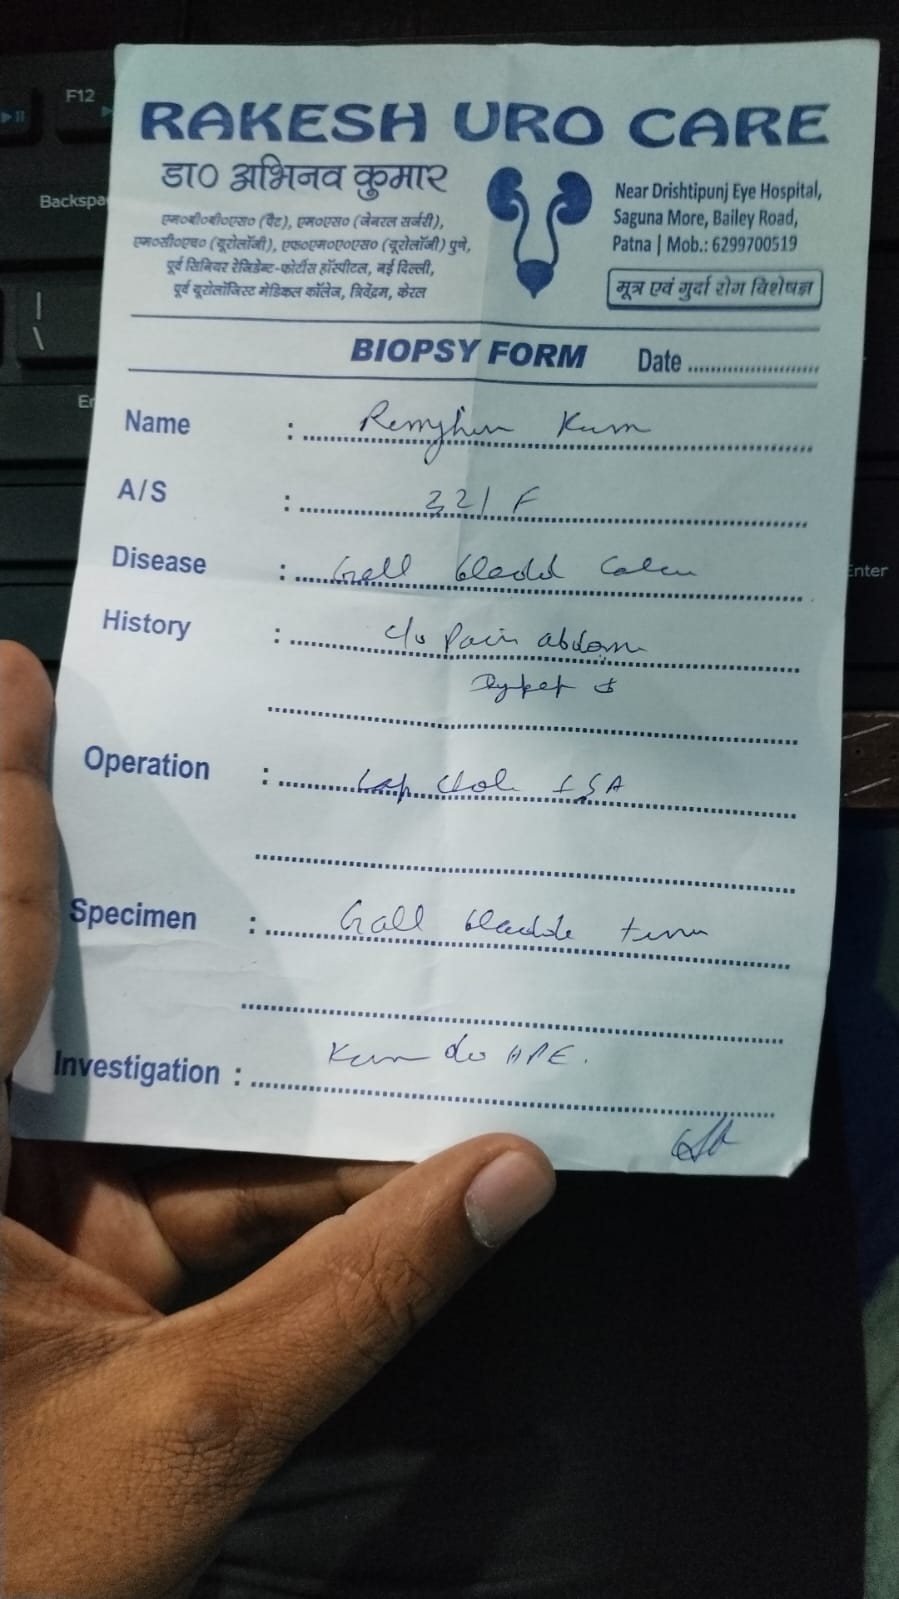 F12
Backspa
RAKESH URO CARE
डा० अभिनव कुमार
एम०बी०बी०एस० (पैट), एम०एस० (जेनरल सर्जरी),
एम०सी०एच० (यूरोलॉजी), एफ०एम०ए०एस० (यूरोलॉजी) पुणे,
पूर्व सिनियर रेजिडेन्ट-फोर्टीस हॉस्पीटल, नई दिल्ली,
पूर्व यूरोलॉजिस्ट मेडिकल कॉलेज, त्रिवेंद्रम, केरल
Near Drishtipunj Eye Hospital,
Saguna More, Bailey Road,
Patna | Mob.: 6299700519
मूत्र एवं गुर्दा रोग विशेषज्ञ
BIOPSY FORM Date
Name :
A/S : F
Disease : Gall
Enter
History : c/o Pain abdom
Operation : Lap
Specimen : Gall bladde
Investigation : HPE.